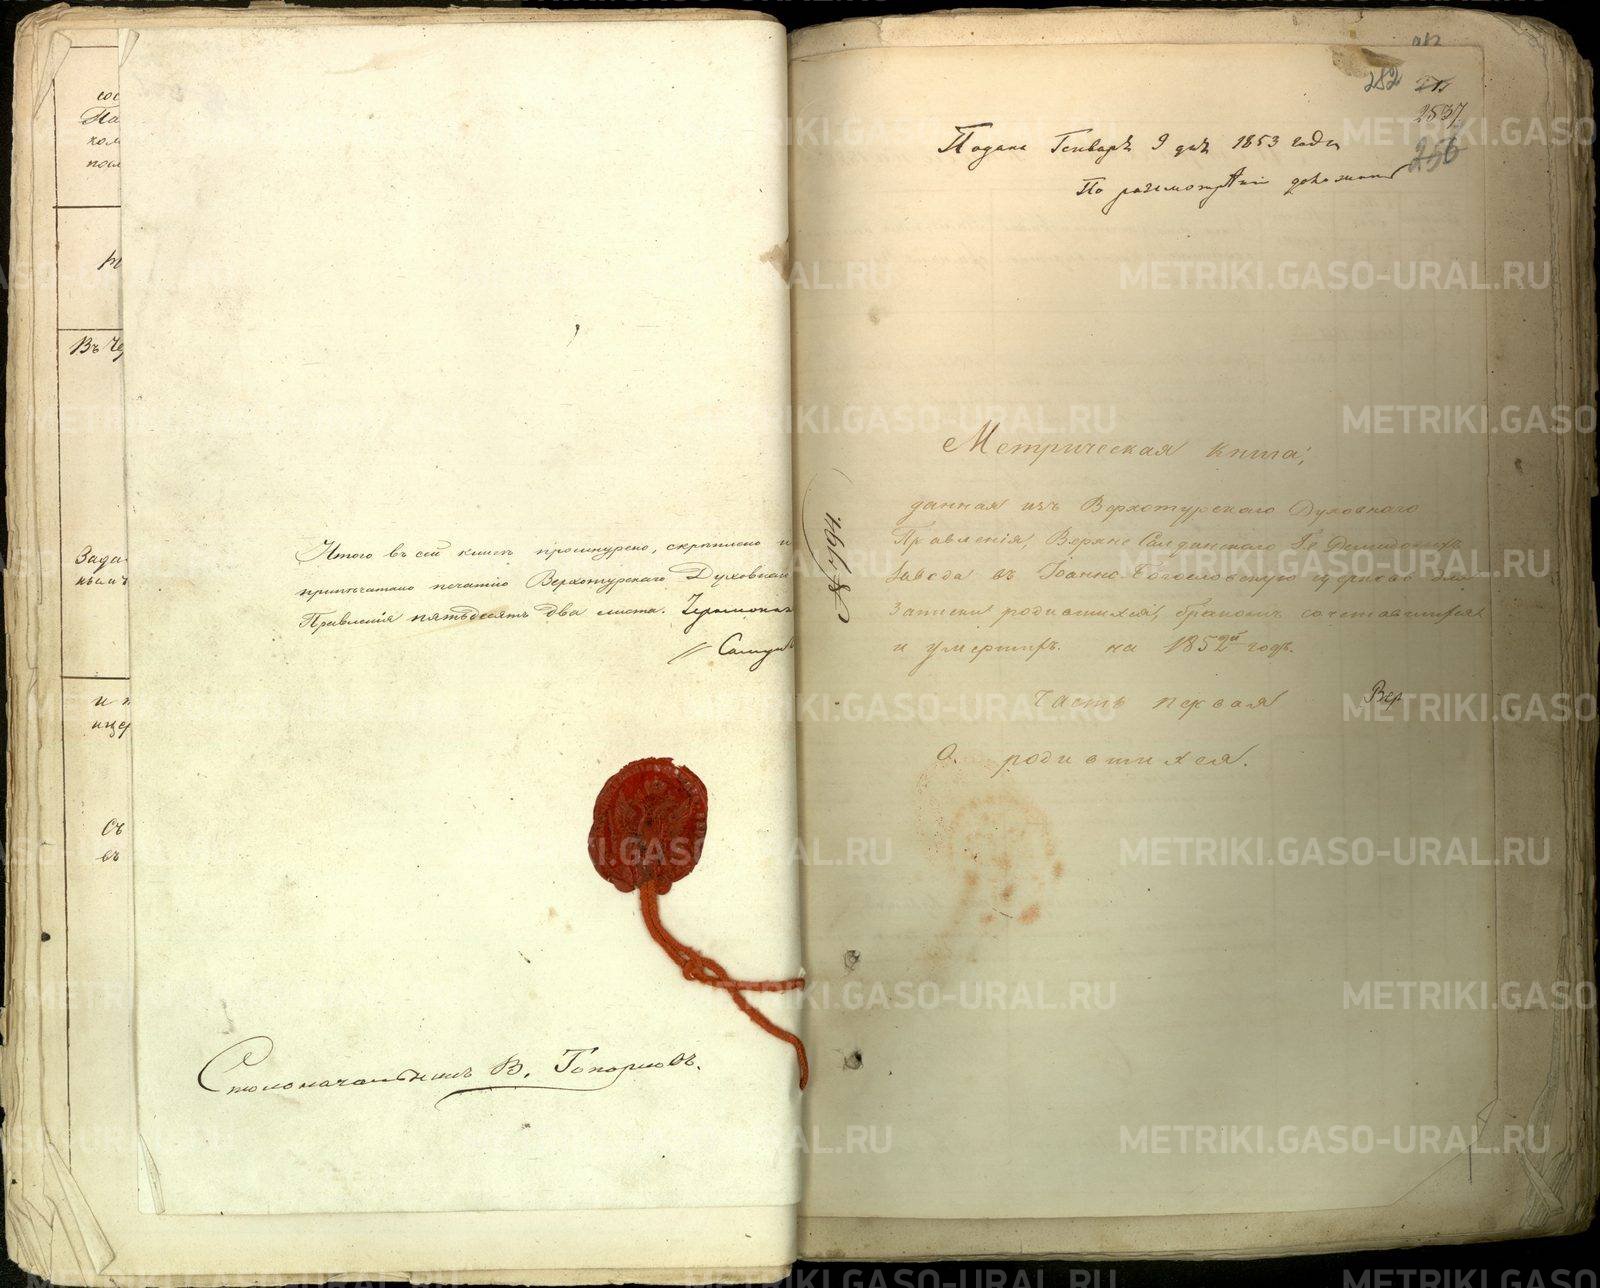 Итого въ сей книгѣ прошнурено, скрѣплено и
припечатано печатію Верхотурскаго Духовнаго
Правленія пятьдесятъ два листа. Іеромонах
Столоначальникъ В. Топорковъ.
282
2537
256
Подана Генваря 9 дня 1853 года
По разсмотрѣніи доложить
№ 794.
Метрическая книга,
данная изъ Верхотурскаго Духовнаго
Правленія Верхне Салдинскаго Гг Демидовыхъ
Завода въ Іоанно-Богословскую церковь для
записки родившихся, бракомъ сочетавшихся
и умершихъ. на 1852й годъ.
Часть первая
Вер
О. родившихся.
METRIKI.GASO-URAL.RU